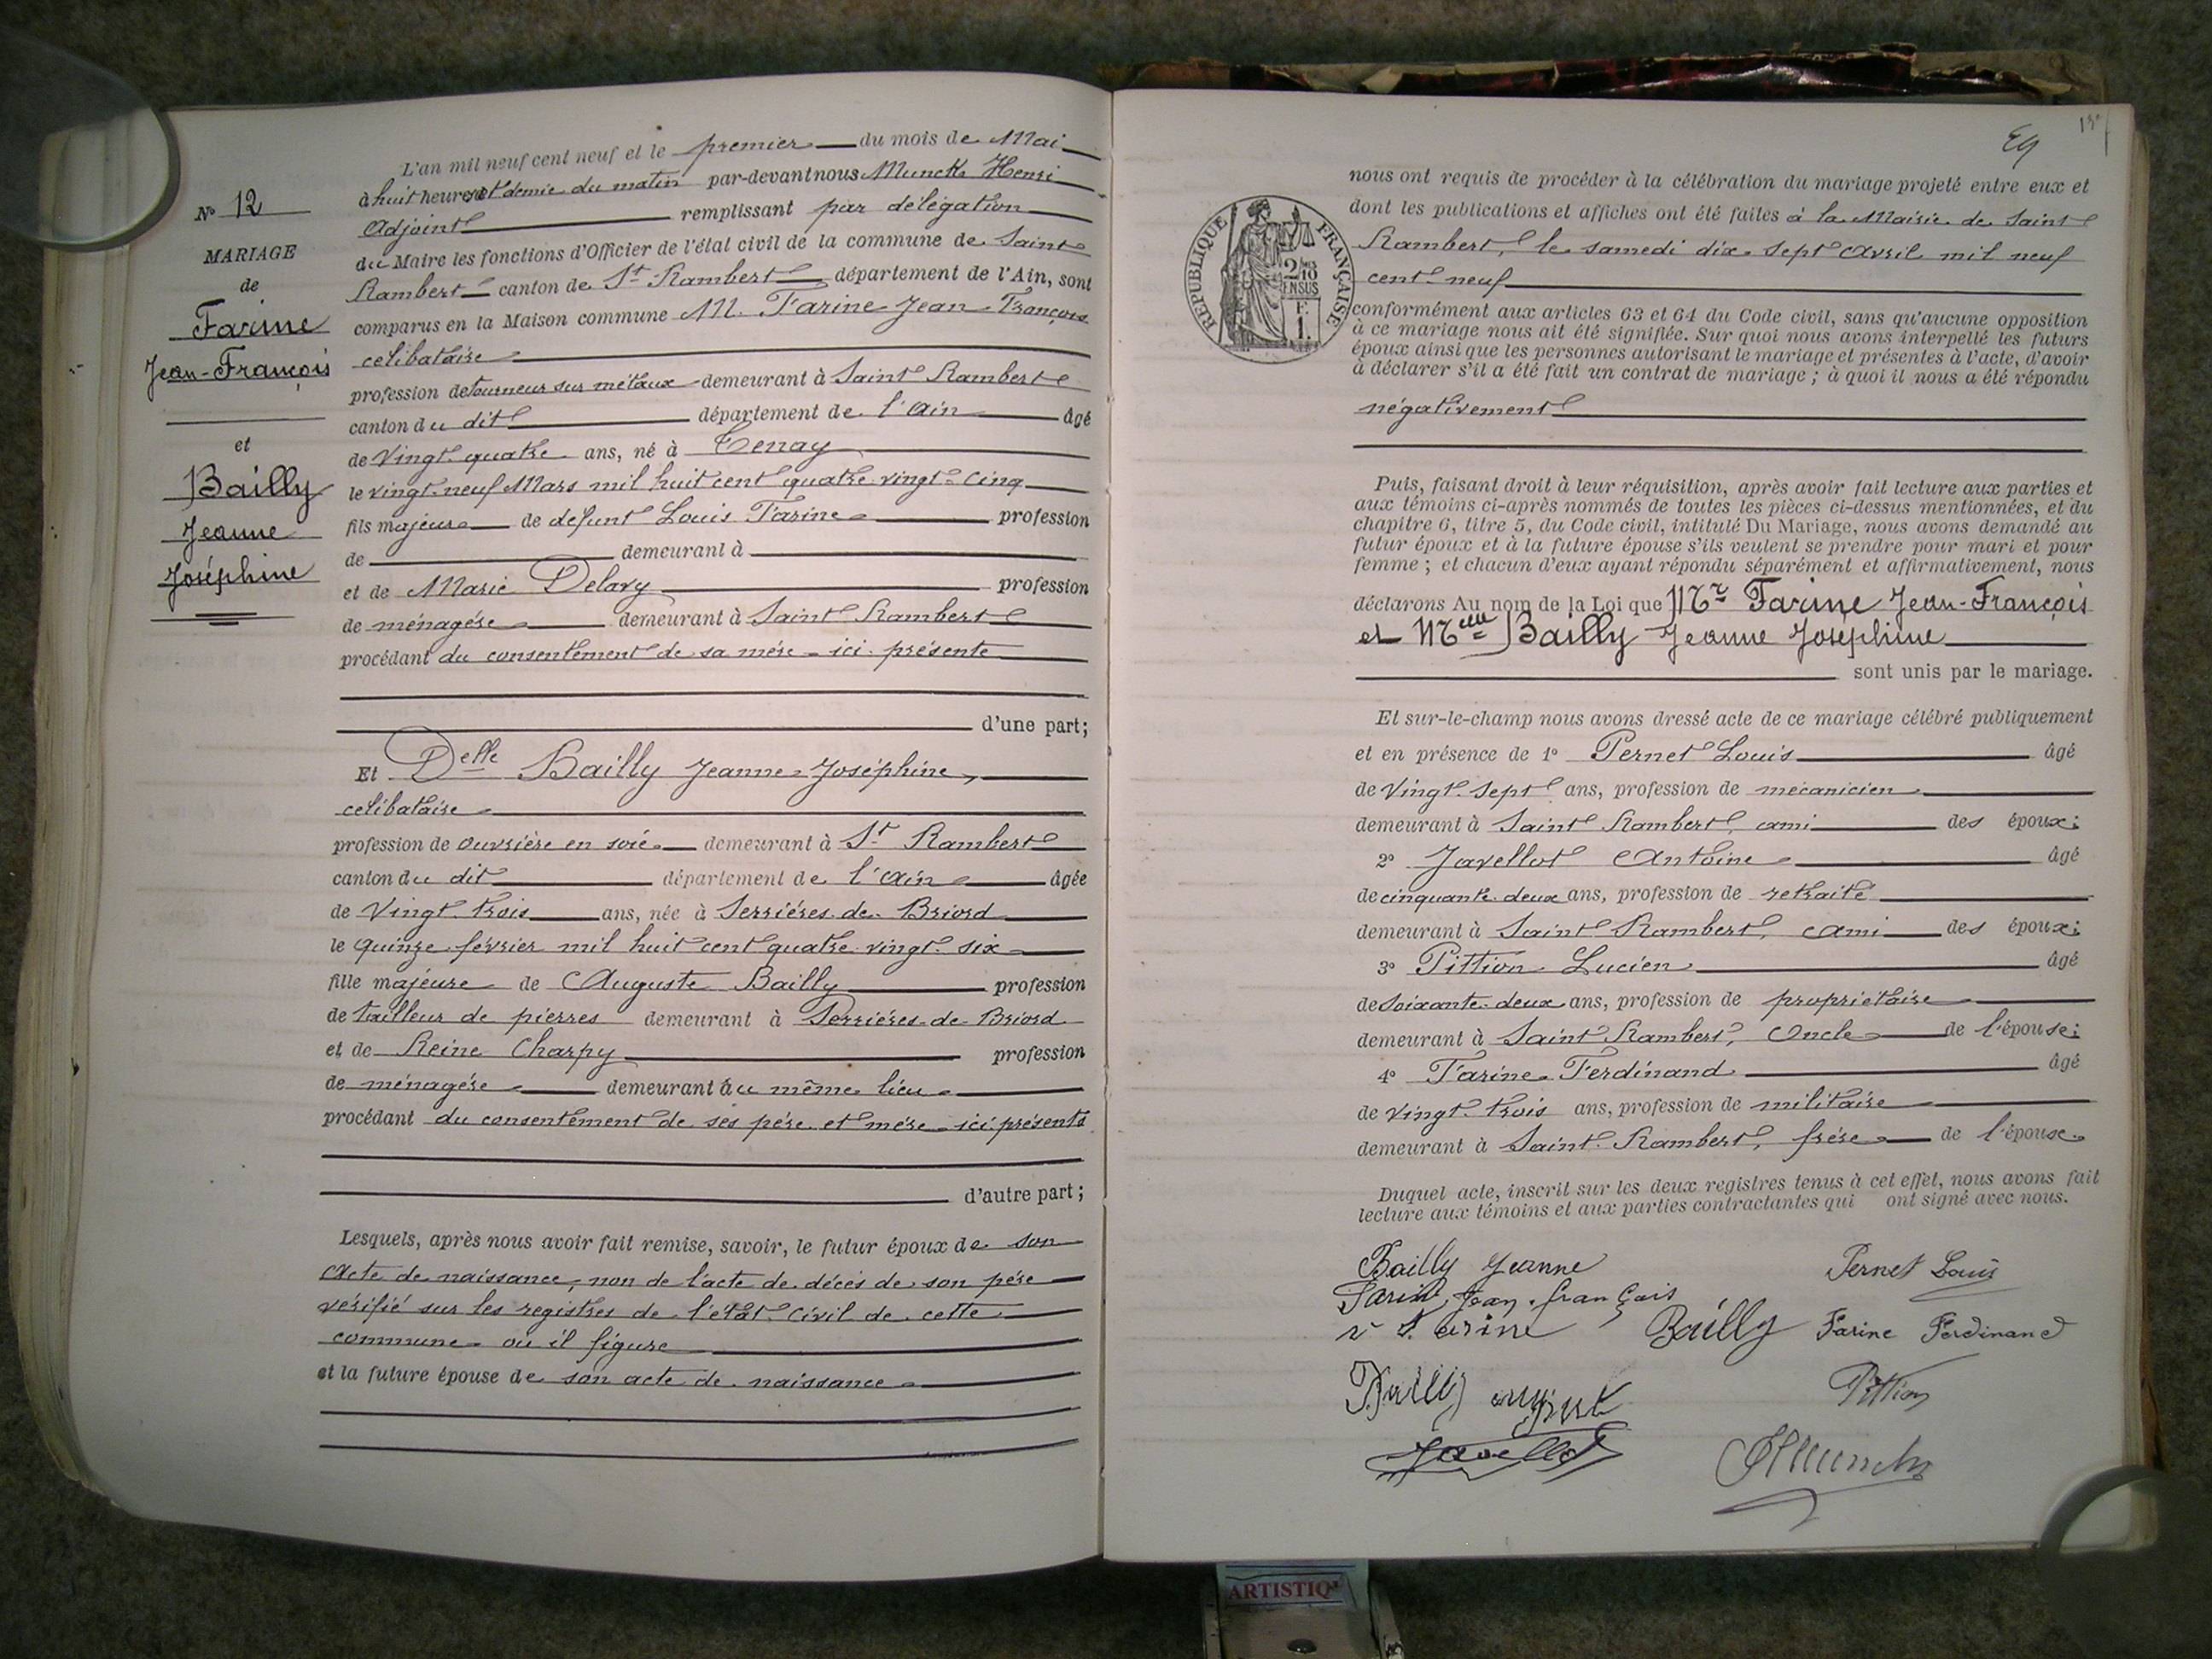 N° 12
MARIAGE
de
Farine
Jean-François
et
Bailly
Jeanne
Joséphine
L'an mil neuf cent neuf et le premier du mois de Mai
à huit heures et demie du matin par-devant nous Munck Henri
Adjoint remplissant par délégation
du Maire les fonctions d'Officier de l'état civil de la commune de Saint
Rambert canton de St Rambert département de l'Ain, sont
comparus en la Maison commune M. Farine Jean-François
célibataire
profession de tourneur sur métaux demeurant à Saint Rambert
canton du dit département de l'Ain âgé
de Vingt quatre ans, né à Tenay
le vingt-neuf Mars mil huit cent quatre vingt-cinq
fils majeur de défunt Louis Farine profession
de demeurant à
et de Marie Delavy profession
de ménagère demeurant à Saint Rambert
procédant du consentement de sa mère ici présente
d'une part;
Et Delle Bailly Jeanne-Joséphine,
célibataire
profession de ouvrière en soie demeurant à St Rambert
canton du dit département de l'Ain âgée
de Vingt trois ans, née à Serrières-de-Briord
le quinze février mil huit cent quatre vingt-six
fille majeure de Auguste Bailly profession
de tailleur de pierres demeurant à Serrières-de-Briord
et de Reine Charpy profession
de ménagère demeurant au même lieu
procédant du consentement de ses père et mère ici présents
d'autre part;
Lesquels, après nous avoir fait remise, savoir, le futur époux de son
acte de naissance, non de l'acte de décès de son père
vérifié sur les registres de l'état civil de cette
commune où il figure
et la future épouse de son acte de naissance
Eg
RÉPUBLIQUE FRANÇAISE
2/10
EN SUS
F.
1.
nous ont requis de procéder à la célébration du mariage projeté entre eux et
dont les publications et affiches ont été faites à la Mairie de Saint
Rambert, le samedi dix-sept avril mil neuf
cent neuf
conformément aux articles 63 et 64 du Code civil, sans qu'aucune opposition
à ce mariage nous ait été signifiée. Sur quoi nous avons interpellé les futurs
époux ainsi que les personnes autorisant le mariage et présentes à l'acte, d'avoir
à déclarer s'il a été fait un contrat de mariage; à quoi il nous a été répondu
négativement
Puis, faisant droit à leur réquisition, après avoir fait lecture aux parties et
aux témoins ci-après nommés de toutes les pièces ci-dessus mentionnées, et du
chapitre 6, titre 5, du Code civil, intitulé Du Mariage, nous avons demandé au
futur époux et à la future épouse s'ils veulent se prendre pour mari et pour
femme; et chacun d'eux ayant répondu séparément et affirmativement, nous
déclarons Au nom de la Loi que Mr Farine Jean-François
et Melle Bailly Jeanne Joséphine
sont unis par le mariage.
Et sur-le-champ nous avons dressé acte de ce mariage célébré publiquement
et en présence de 1° Pernet Louis âgé
de Vingt-sept ans, profession de mécanicien
demeurant à Saint Rambert, ami des époux;
2° Javellot Antoine âgé
de cinquante-deux ans, profession de retraité
demeurant à Saint Rambert, ami des époux;
3° Pittion Lucien âgé
de Soixante-deux ans, profession de propriétaire
demeurant à Saint Rambert, Oncle de l'épouse;
4° Farine Ferdinand âgé
de vingt trois ans, profession de militaire
demeurant à Saint Rambert, frère de l'épouse
Duquel acte, inscrit sur les deux registres tenus à cet effet, nous avons fait
lecture aux témoins et aux parties contractantes qui ont signé avec nous.
Bailly Jeanne
Pernet Louis
Farine Jean-françois
Bailly
Farine Ferdinand
Pittion
Javellot
HMunck
ARTISTIQ